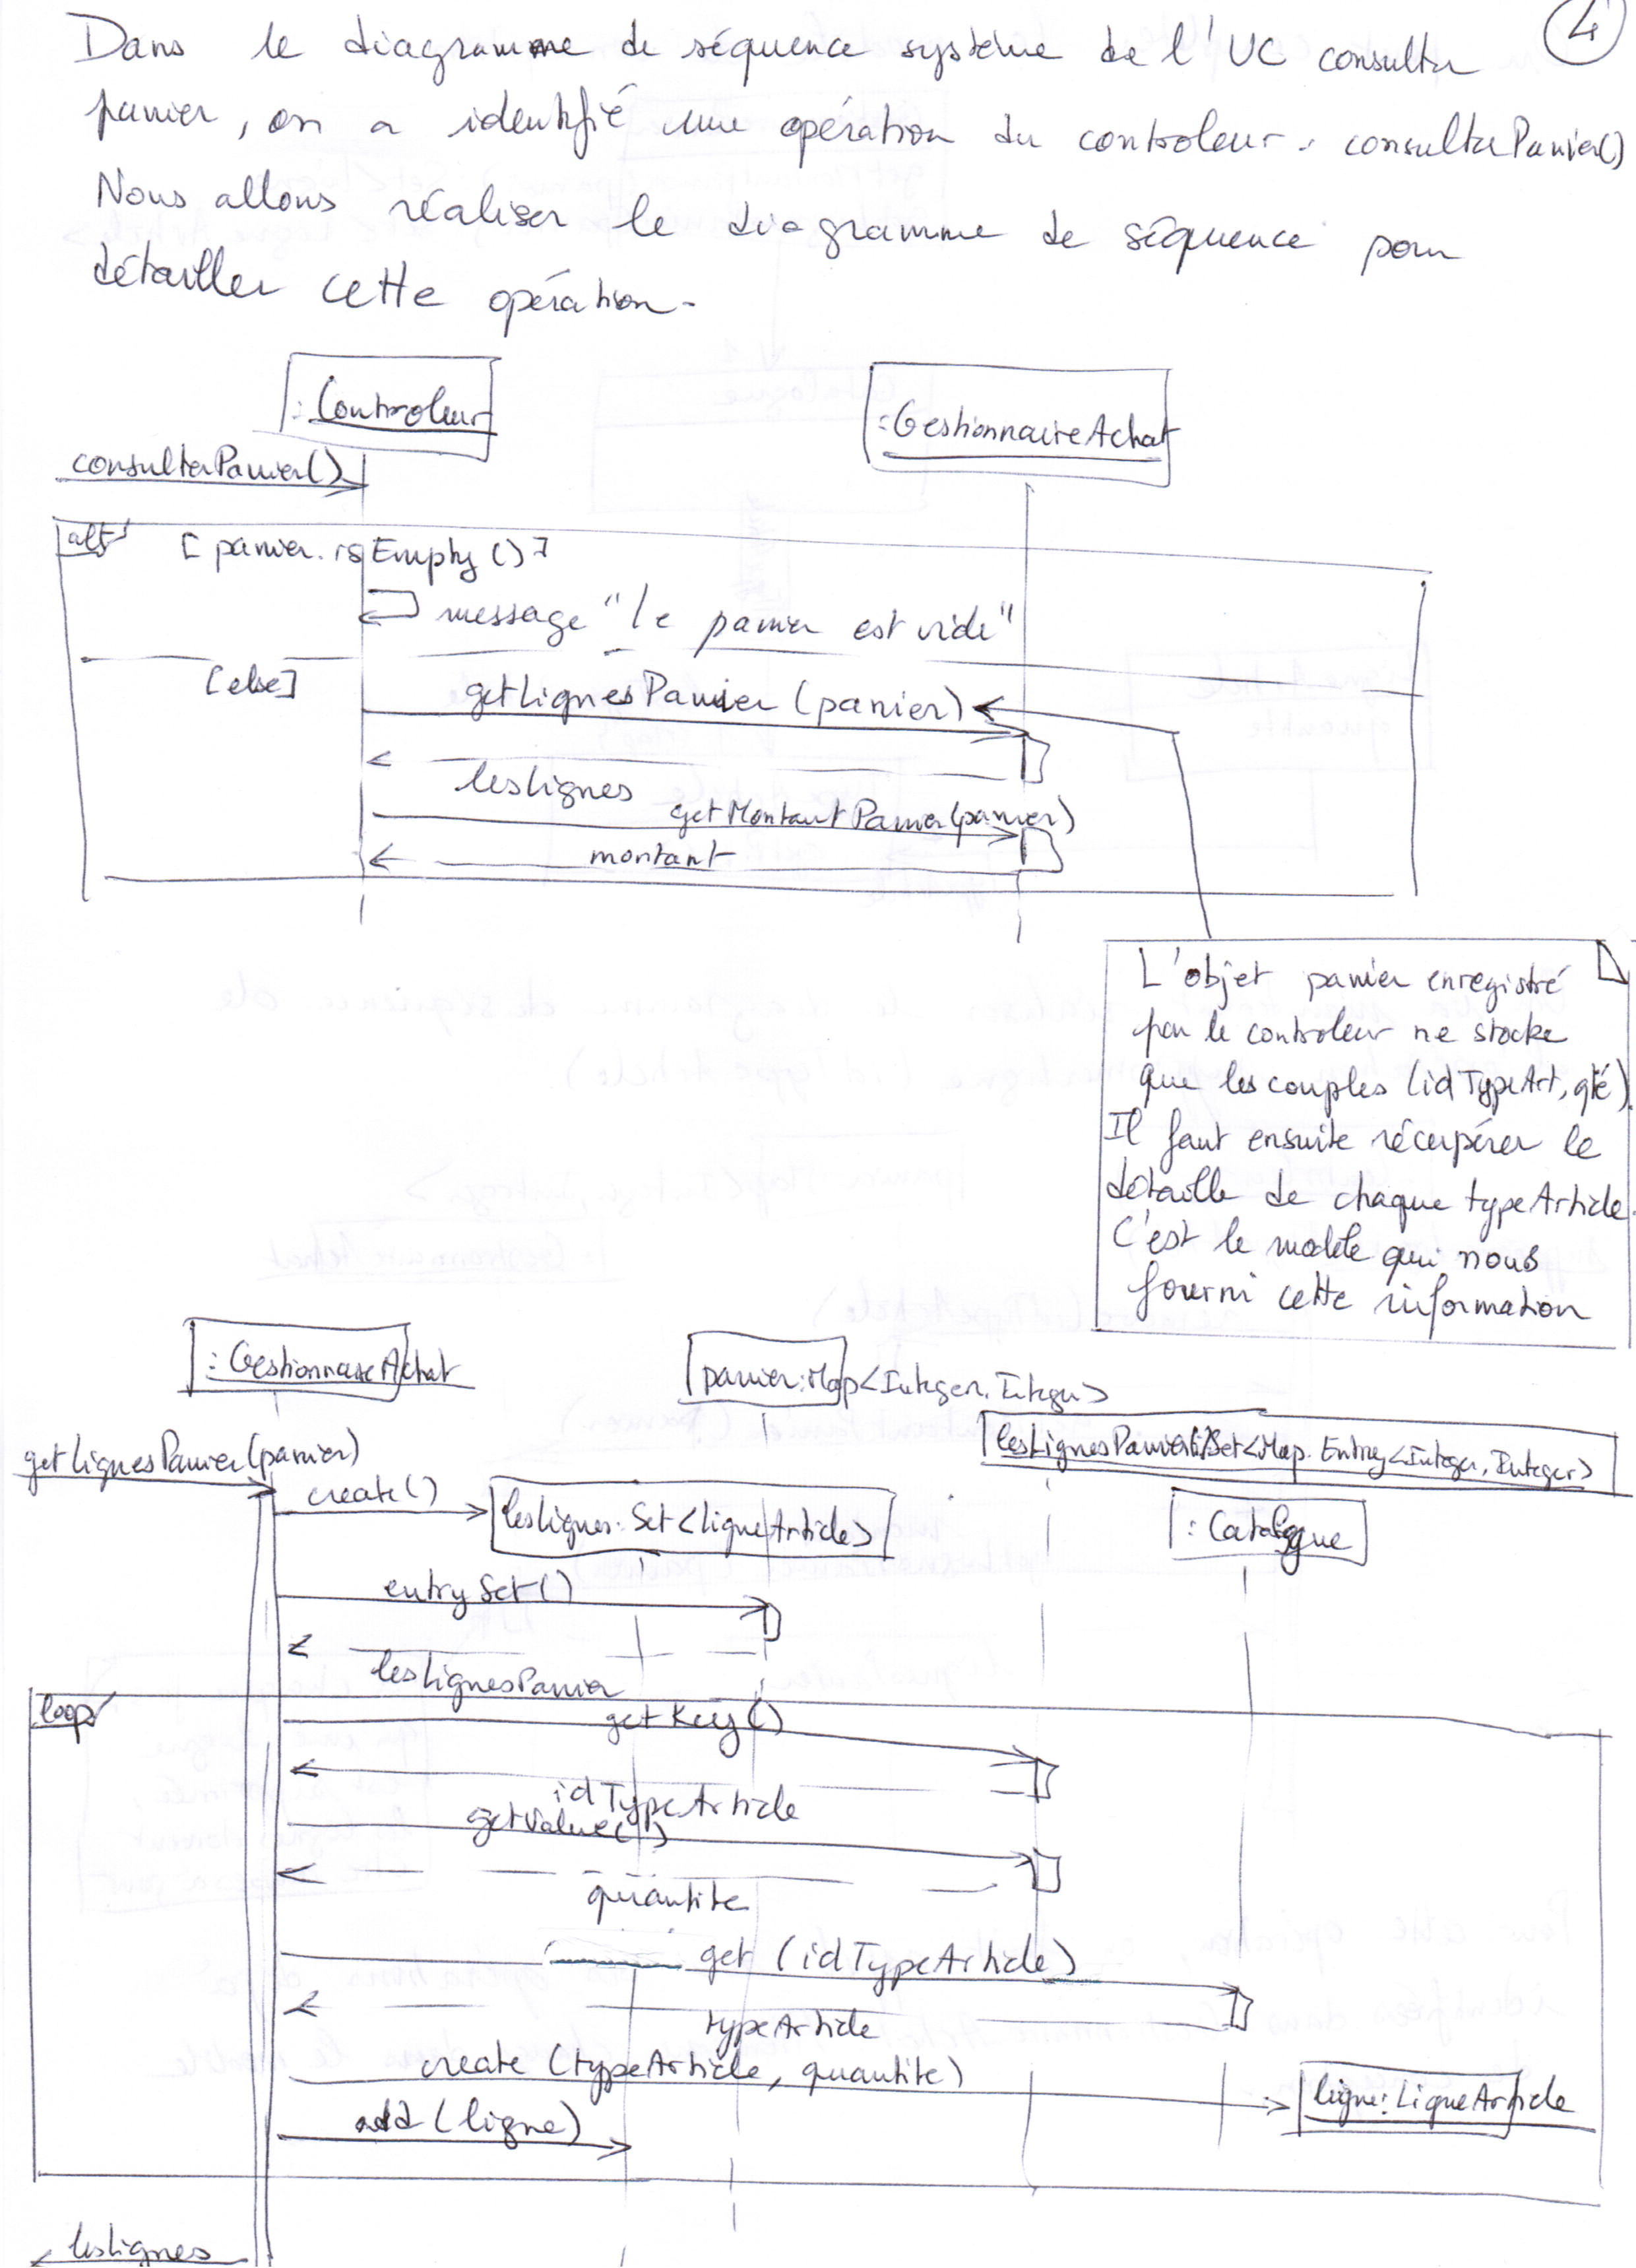 4
Dans le diagramme de séquence système de l'UC consulter
panier, on a identifié une opération du controleur : consulterPanier()
Nous allons réaliser le diagramme de séquence pour
détailler cette opération.
: Controleur
:GestionnaireAchat
consulterPanier()
alt
[panier.isEmpty()]
message "le panier est vide"
[else]
getLignesPanier (panier)
lesLignes
getMontantPanier(panier)
montant
L'objet panier enregistré
par le controleur ne stocke
que les couples (idTypeArt, qté).
Il faut ensuite récupérer le
détaille de chaque typeArticle.
C'est le modèle qui nous
fourni cette information
: GestionnaireAchat
panier:Map<Integer, Integer>
lesLignesPanier:Set<Map.Entry<Integer, Integer>
getLignesPanier(panier)
create()
lesLignes: Set<LigneArticle>
: Catalogue
entrySet()
lesLignesPanier
loop
getKey()
idTypeArticle
getValue()
quantite
get (idTypeArticle)
typeArticle
create (typeArticle, quantite)
ligne:LigneArticle
add (ligne)
lesLignes